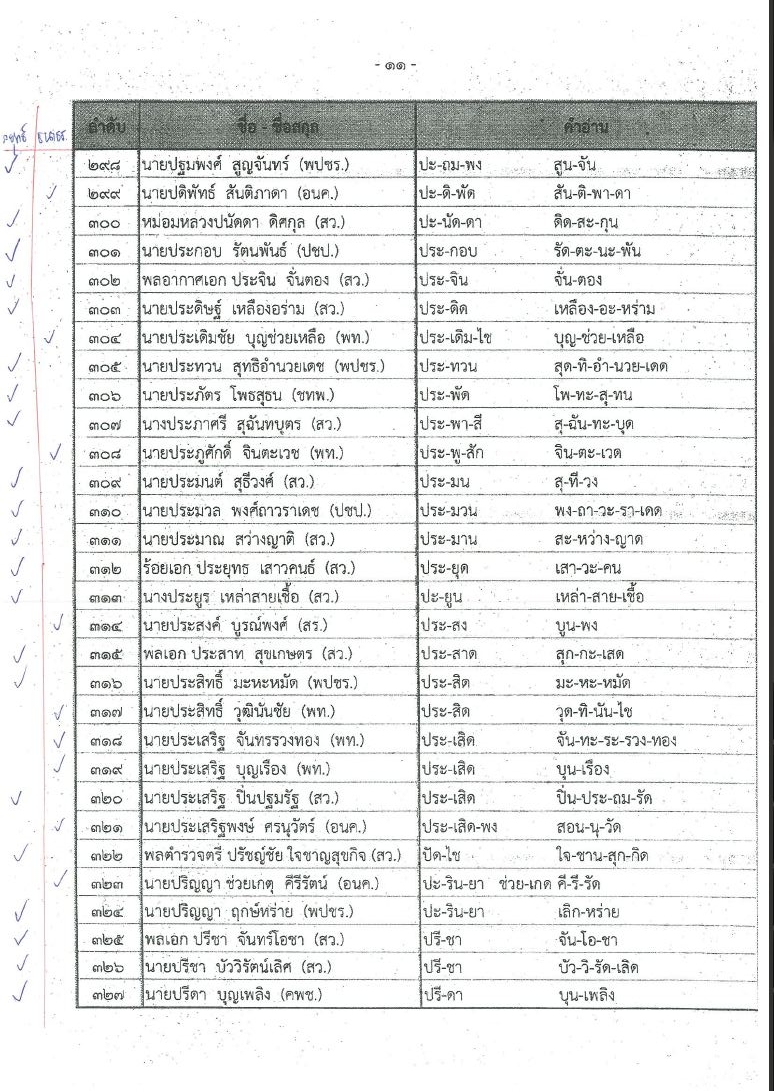 - ๑๑ -
ลำดับ ชื่อ - ชื่อสกุล คำอ่าน
๒๙๘ นายปฐมพงศ์ สูญจันทร์ (พปชร.) ปะ-ถม-พง สูน-จัน
๒๙๙ นายปดิพัทธ์ สันติภาดา (อนค.) ปะ-ดิ-พัด สัน-ติ-พา-ดา
๓๐๐ หม่อมหลวงปนัดดา ดิศกุล (สว.) ปะ-นัด-ดา ดิด-สะ-กุน
๓๐๑ นายประกอบ รัตนพันธ์ (ปชป.) ประ-กอบ รัด-ตะ-นะ-พัน
๓๐๒ พลอากาศเอก ประจิน จั่นตอง (สว.) ประ-จิน จั่น-ตอง
๓๐๓ นายประดิษฐ์ เหลืองอร่าม (สว.) ประ-ดิด เหลือง-อะ-หร่าม
๓๐๔ นายประเดิมชัย บุญช่วยเหลือ (พท.) ประ-เดิม-ไช บุญ-ช่วย-เหลือ
๓๐๕ นายประทวน สุทธิอำนวยเดช (พปชร.) ประ-ทวน สุด-ทิ-อำ-นวย-เดด
๓๐๖ นายประภัตร โพธสุธน (ชทพ.) ประ-พัด โพ-ทะ-สุ-ทน
๓๐๗ นางประภาศรี สุฉันทบุตร (สว.) ประ-พา-สี สุ-ฉัน-ทะ-บุด
๓๐๘ นายประภูศักดิ์ จินตะเวช (พท.) ประ-พู-สัก จิน-ตะ-เวด
๓๐๙ นายประมนต์ สุธีวงศ์ (สว.) ประ-มน สุ-ที-วง
๓๑๐ นายประมวล พงศ์ถาวราเดช (ปชป.) ประ-มวน พง-ถา-วะ-รา-เดด
๓๑๑ นายประมาณ สว่างญาติ (สว.) ประ-มาน สะ-หว่าง-ญาด
๓๑๒ ร้อยเอก ประยุทธ เสาวคนธ์ (สว.) ประ-ยุด เสา-วะ-คน
๓๑๓ นางประยูร เหล่าสายเชื้อ (สว.) ปะ-ยูน เหล่า-สาย-เชื้อ
๓๑๔ นายประสงค์ บูรณ์พงศ์ (สร.) ประ-สง บูน-พง
๓๑๕ พลเอก ประสาท สุขเกษตร (สว.) ประ-สาด สุก-กะ-เสด
๓๑๖ นายประสิทธิ์ มะหะหมัด (พปชร.) ประ-สิด มะ-หะ-หมัด
๓๑๗ นายประสิทธิ์ วุฒินันชัย (พท.) ประ-สิด วุด-ทิ-นัน-ไช
๓๑๘ นายประเสริฐ จันทรรวงทอง (พท.) ประ-เสิด จัน-ทะ-ระ-รวง-ทอง
๓๑๙ นายประเสริฐ บุญเรือง (พท.) ประ-เสิด บุน-เรือง
๓๒๐ นายประเสริฐ ปิ่นปฐมรัฐ (สว.) ประ-เสิด ปิ่น-ประ-ถม-รัด
๓๒๑ นายประเสริฐพงษ์ ศรนุวัตร์ (อนค.) ประ-เสิด-พง สอน-นุ-วัด
๓๒๒ พลตำรวจตรี ปรัชญ์ชัย ใจชาญสุขกิจ (สว.) ปัด-ไช ใจ-ชาน-สุก-กิด
๓๒๓ นายปริญญา ช่วยเกตุ คีรีรัตน์ (อนค.) ปะ-ริน-ยา ช่วย-เกด คี-รี-รัด
๓๒๔ นายปริญญา ฤกษ์หร่าย (พปชร.) ปะ-ริน-ยา เลิก-หร่าย
๓๒๕ พลเอก ปรีชา จันทร์โอชา (สว.) ปรี-ชา จัน-โอ-ชา
๓๒๖ นายปรีชา บัววิรัตน์เลิศ (สว.) ปรี-ชา บัว-วิ-รัด-เลิด
๓๒๗ นายปรีดา บุญเพลิง (คพช.) ปรี-ดา บุน-เพลิง